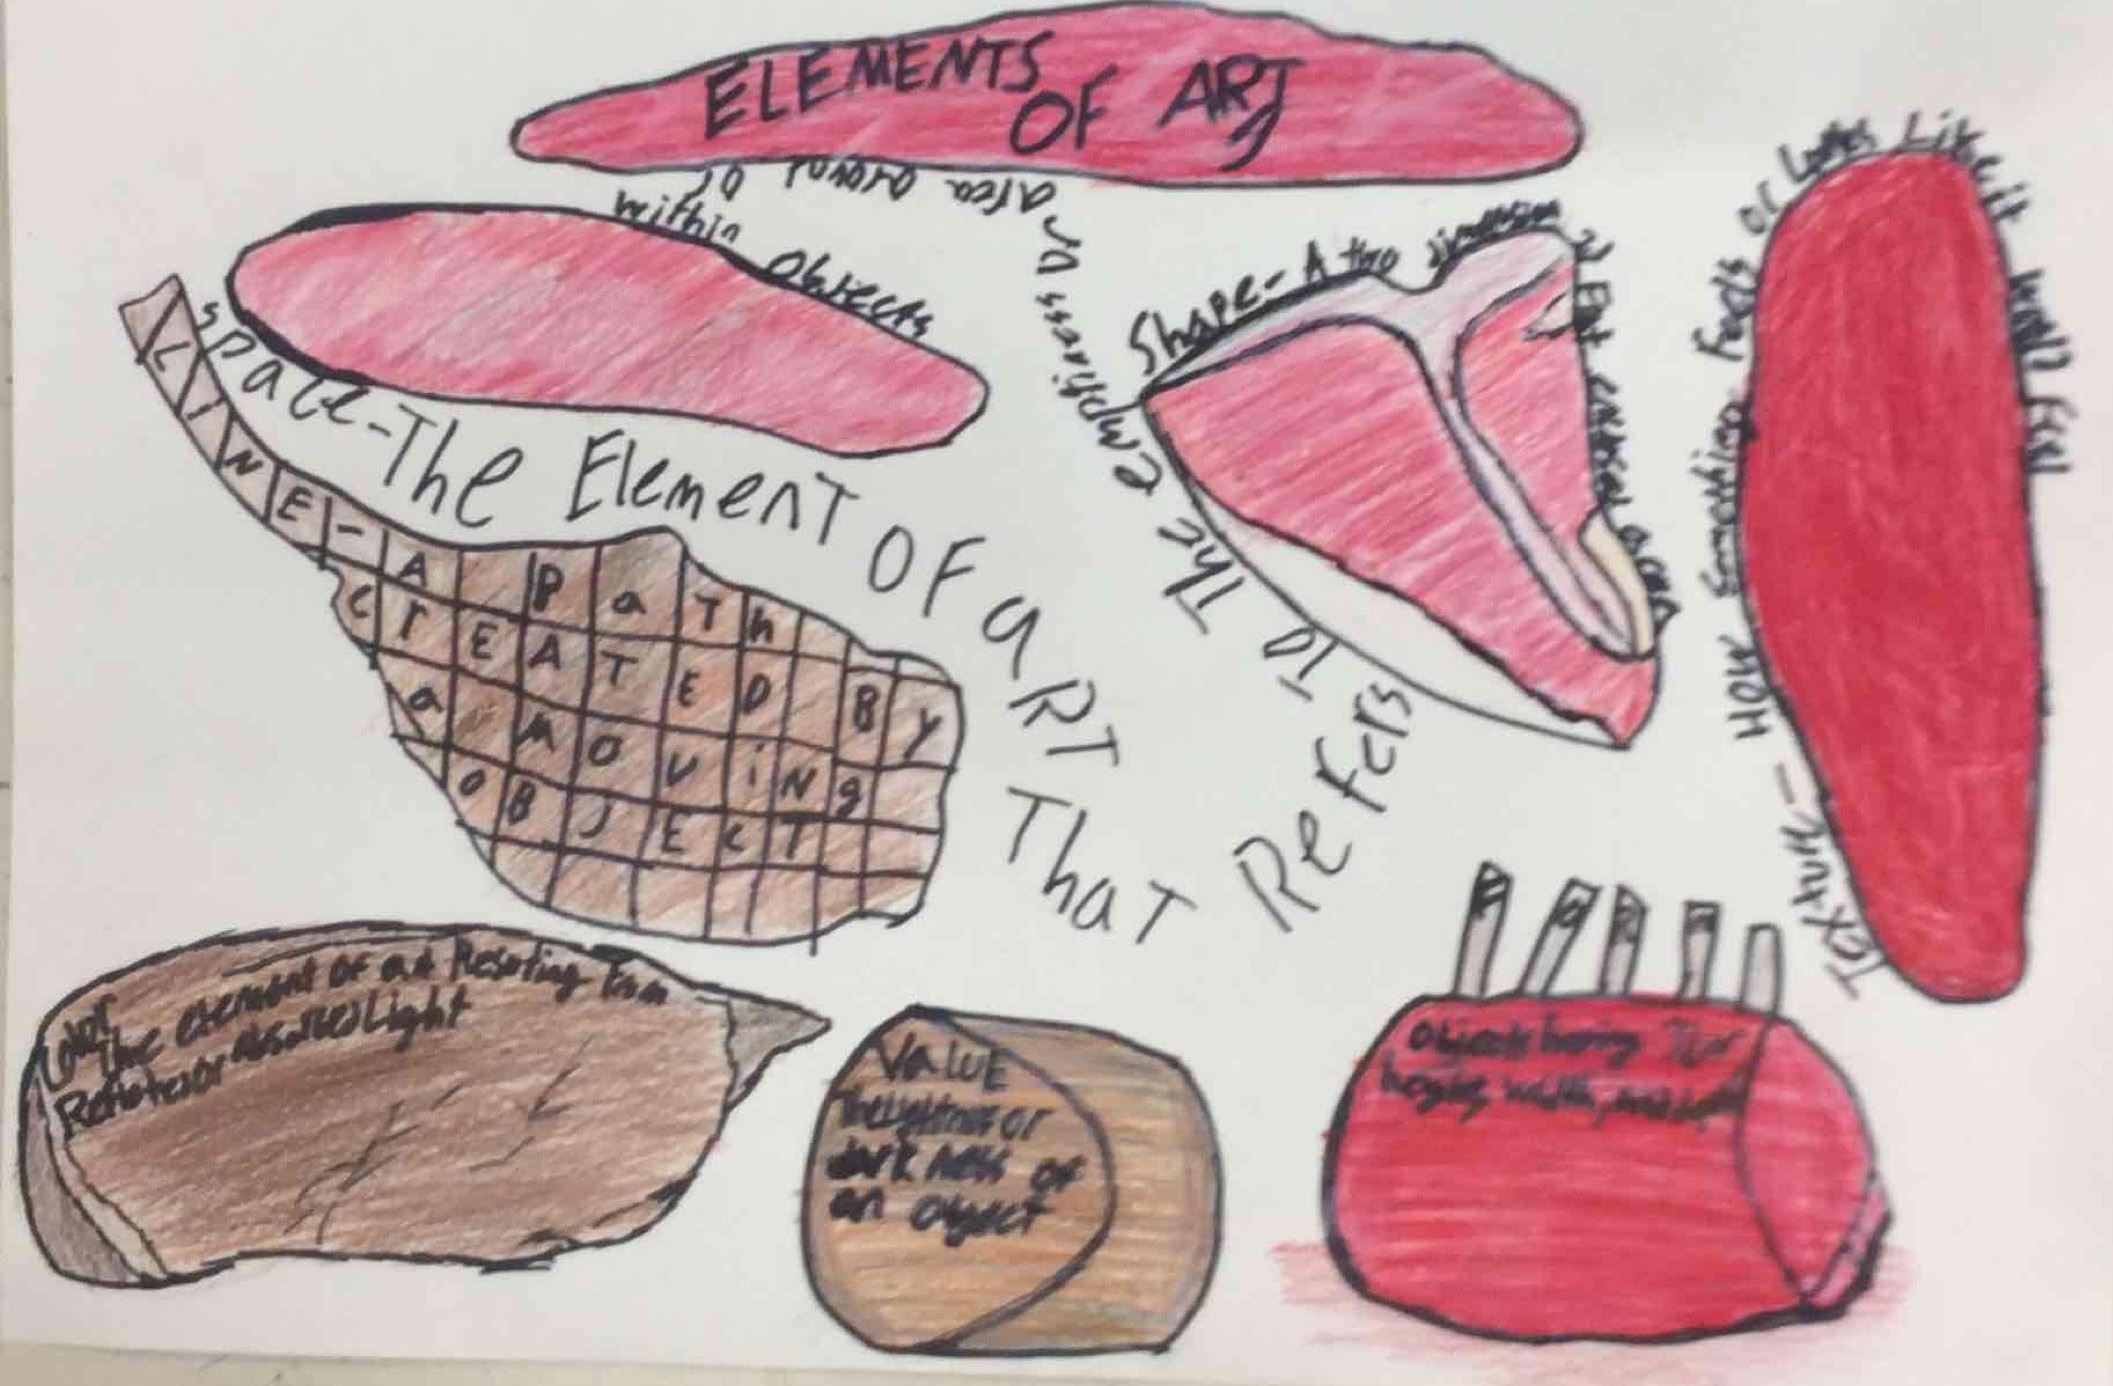 ELEMENTS
OF ART
Space-The Element OF aRT That Refers To The emptiness or area around or within objects
Shape- A two dimension Flat enclosed area
Texture- How Something Feels or Looks Like it would Feel
LINE-A Path
CrEATED BY
a MOViNg
OBJECT
Color
The element of art Resulting From
Reflected or Absorbed Light
VaLUE
The lightness or
darkness of
an object
Objects having
width,